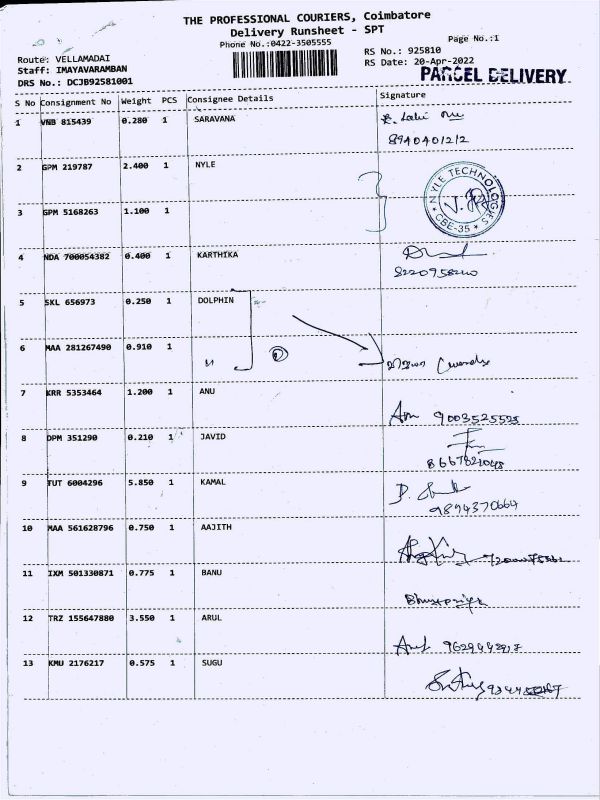 THE PROFESSIONAL COURIERS, Coimbatore
Delivery Runsheet - SPT
Phone No.:0422-3505555
Page No.:1
Route: VELLAMADAI
RS No.: 925810
Staff: IMAYAVARAMBAN
RS Date: 20-Apr-2022
DRS No.: DCJB92581001
PARCEL DELIVERY
S No Consignment No Weight PCS Consignee Details Signature
1 VNB 815439 0.280 1 SARAVANA
8940401212
2 GPM 219787 2.400 1 NYLE
NYLE TECHNOLOGIES * CBE-35 *
3 GPM 5168263 1.100 1
4 NDA 700054382 0.400 1 KARTHIKA
5 SKL 656973 0.250 1 DOLPHIN
6 MAA 281267490 0.910 1
7 KRR 5353464 1.200 1 ANU
9003525525
8 DPM 351290 0.210 1 JAVID
9 TUT 6004296 5.850 1 KAMAL
9894370664
10 MAA 561628796 0.750 1 AAJITH
11 IXM 501330871 0.775 1 BANU
12 TRZ 155647880 3.550 1 ARUL
13 KMU 2176217 0.575 1 SUGU